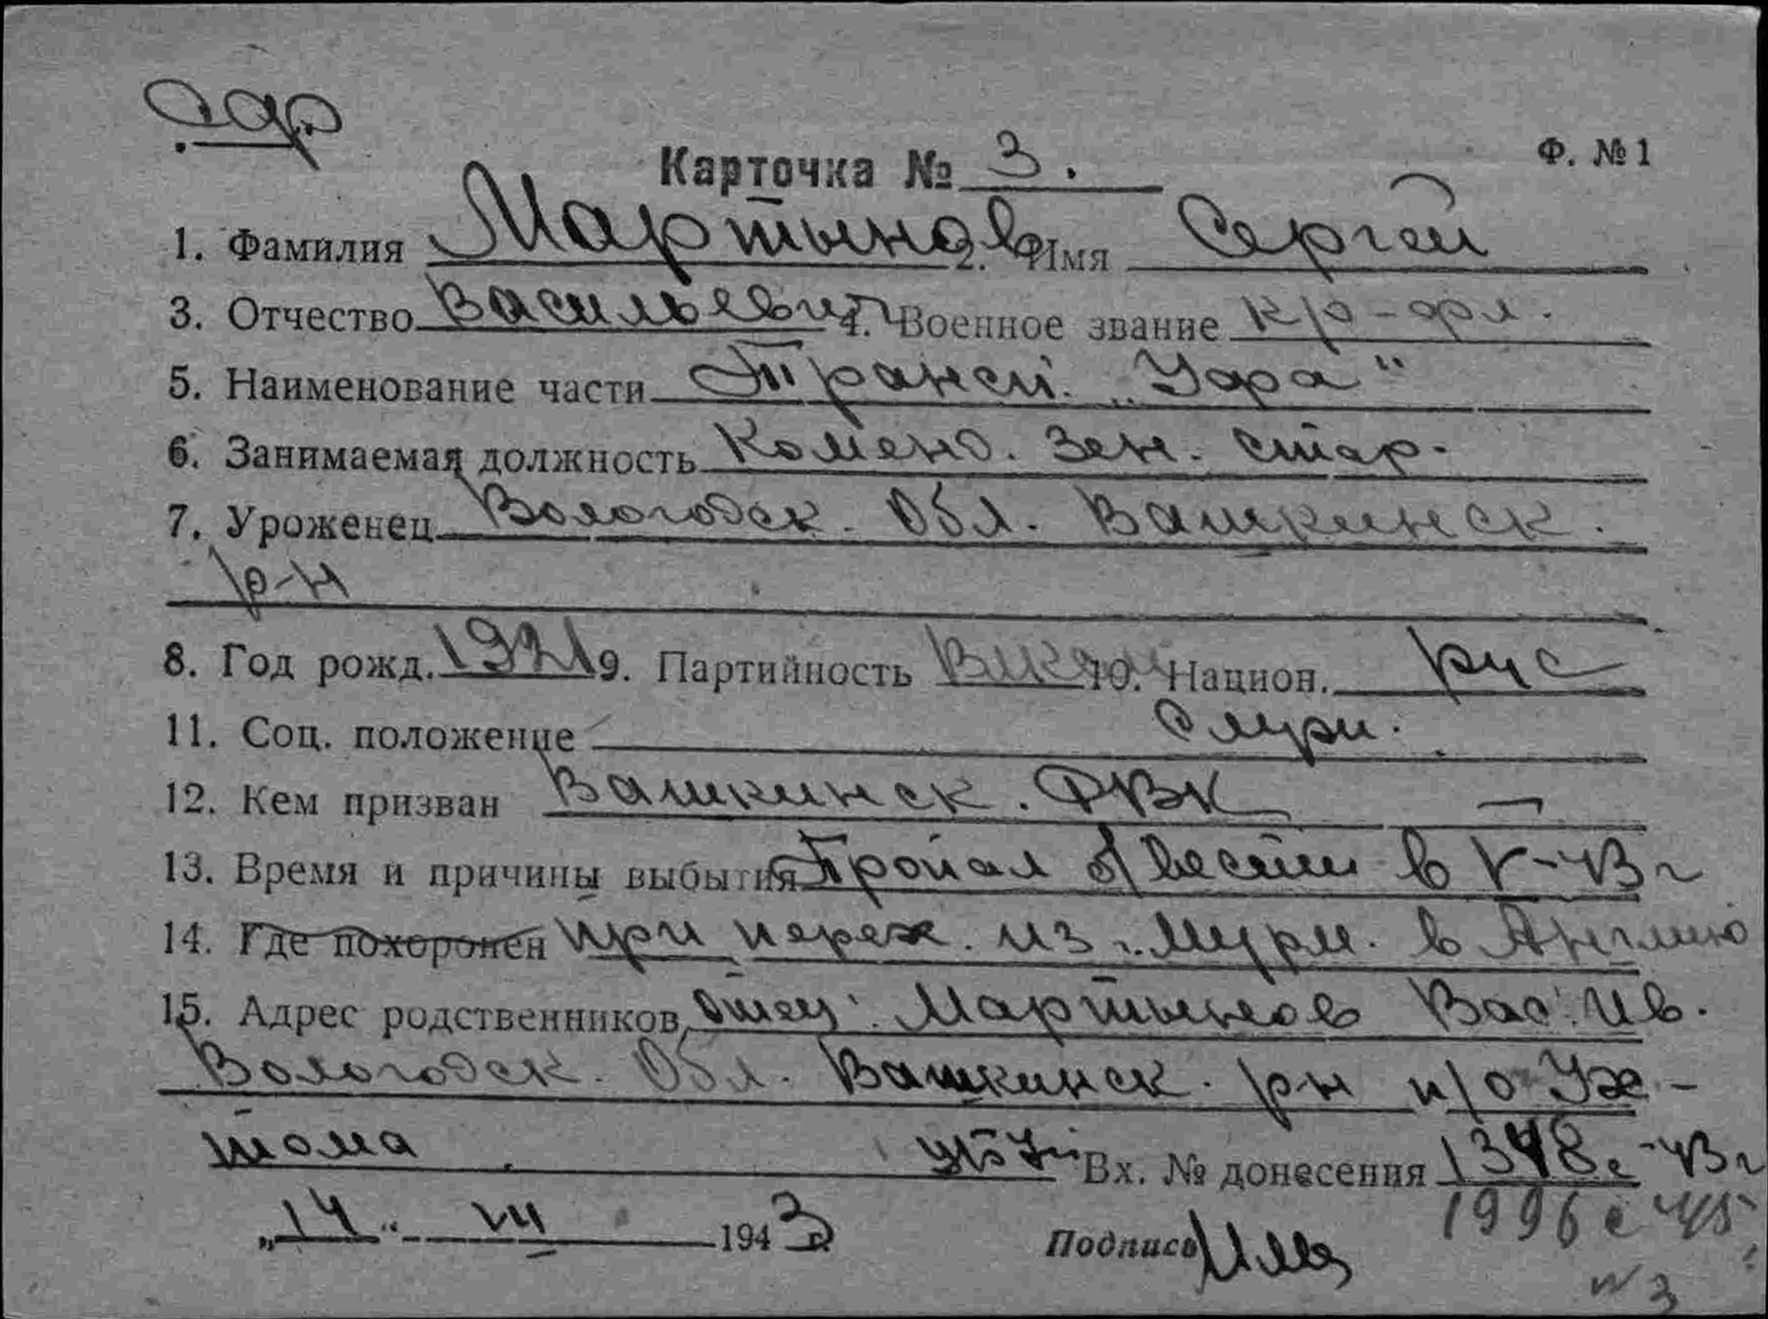 Карточка № 3.
Ф. № 1
1. Фамилия Мартынов 2. Имя Сергей
3. Отчество Васильевич 4. Военное звание кр-фл.
5. Наименование части Трансп. „Уфа"
6. Занимаемая должность Коменд. Зен. стар.
7. Уроженец Вологодск. Обл. Вашкинск.
р-н
8. Год рожд. 1921 9. Партийность 10. Национ. рус
11. Соц. положение Служ.
12. Кем призван Вашкинск. РВК
13. Время и причины выбытия Пропал б/вести в V-43 г
14. Где похоронен при переж. из Мурм. в Англию
15. Адрес родственников отец. Мартынов Вас. Ив.
Вологодск. Обл. Вашкинск. р-н п/о Ух-
тома Вх. № донесения 1348с -43 г
1996 с 45
„14" VII 1943 Подпись
№ 3